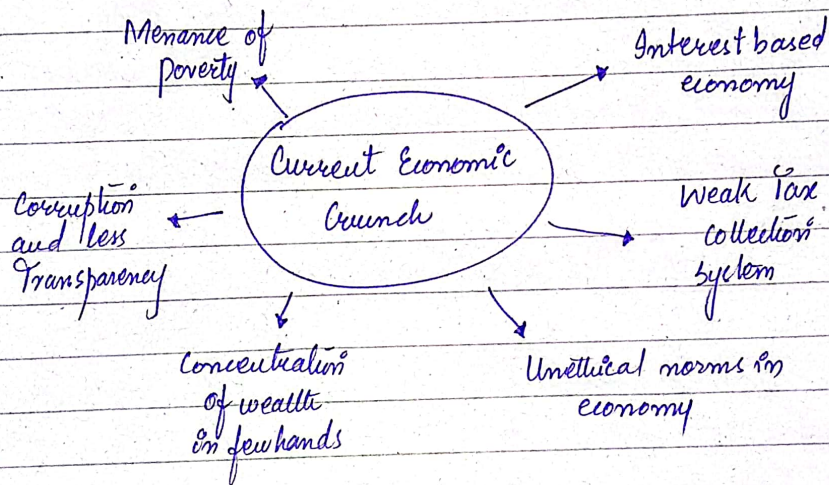 Menance of
poverty
Interest based
economy
Current Economic
Crunch
Corruption
and less
Transparency
Weak Tax
collection
system
Concentration
of wealth
in few hands
Unethical norms in
economy